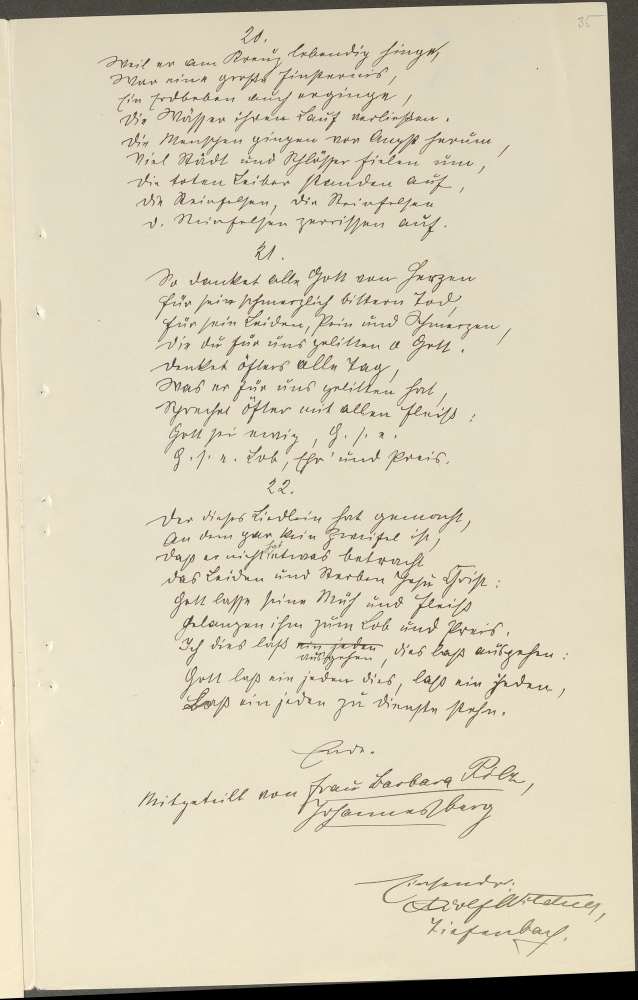 35
20.
Weil er am Kreuz lebendig hinge,
War eine große Finsternis,
Ein Erdbeben auch erginge,
Die Wässer ihren Lauf verließen.
Die Menschen gingen vor Angst herum,
Viel Städt und Schlösser fielen um,
Die toten Leiber standen auf,
Die Steinfelsen, die Steinfelsen
d. Steinfelsen zerrissen auf.
21.
So danket alle Gott von Herzen
Für sein schmerzlich bittern Tod,
Für sein Leiden, Pein und Schmerzen,
Die du für uns gelitten o Gott.
Denket öfters alle Tag,
Was er für uns gelitten hat,
Sprechet öfter mit allen Fleiß:
Gott sei ewig, G. s. e.
G. s. e. Lob, Ehr' und Preis.
22.
Der dieses Liedlein hat gemacht,
An dem gar kein Zweifel ist,
Daß er nicht hat etwas betracht
Das Leiden und Sterben Jesu Christ:
Gott lasse seine Müh und Fleiß
Gelangen ihm zum Lob und Preis.
Ich dies laß ein jeden ausgehen, dies laß ausgehen:
Gott laß ein jeden dies, laß ein jeden,
Laß ein jeden zu Dienste stehn.
Ende.
Mitgeteilt von Frau Barbara Pilz,
Johannesberg
Einsender:
Adolf Wildner,
Tiefenbach.